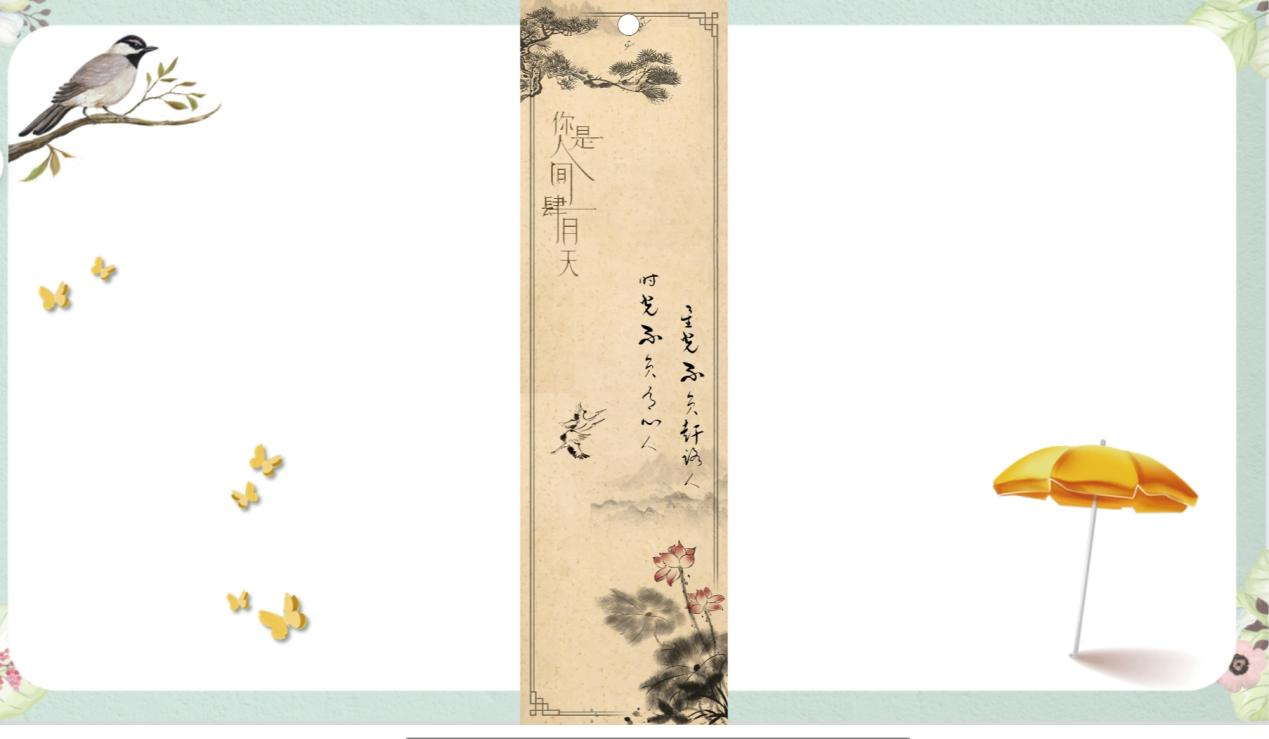 你是人间肆月天
星光不负赶路人
时光不负有心人